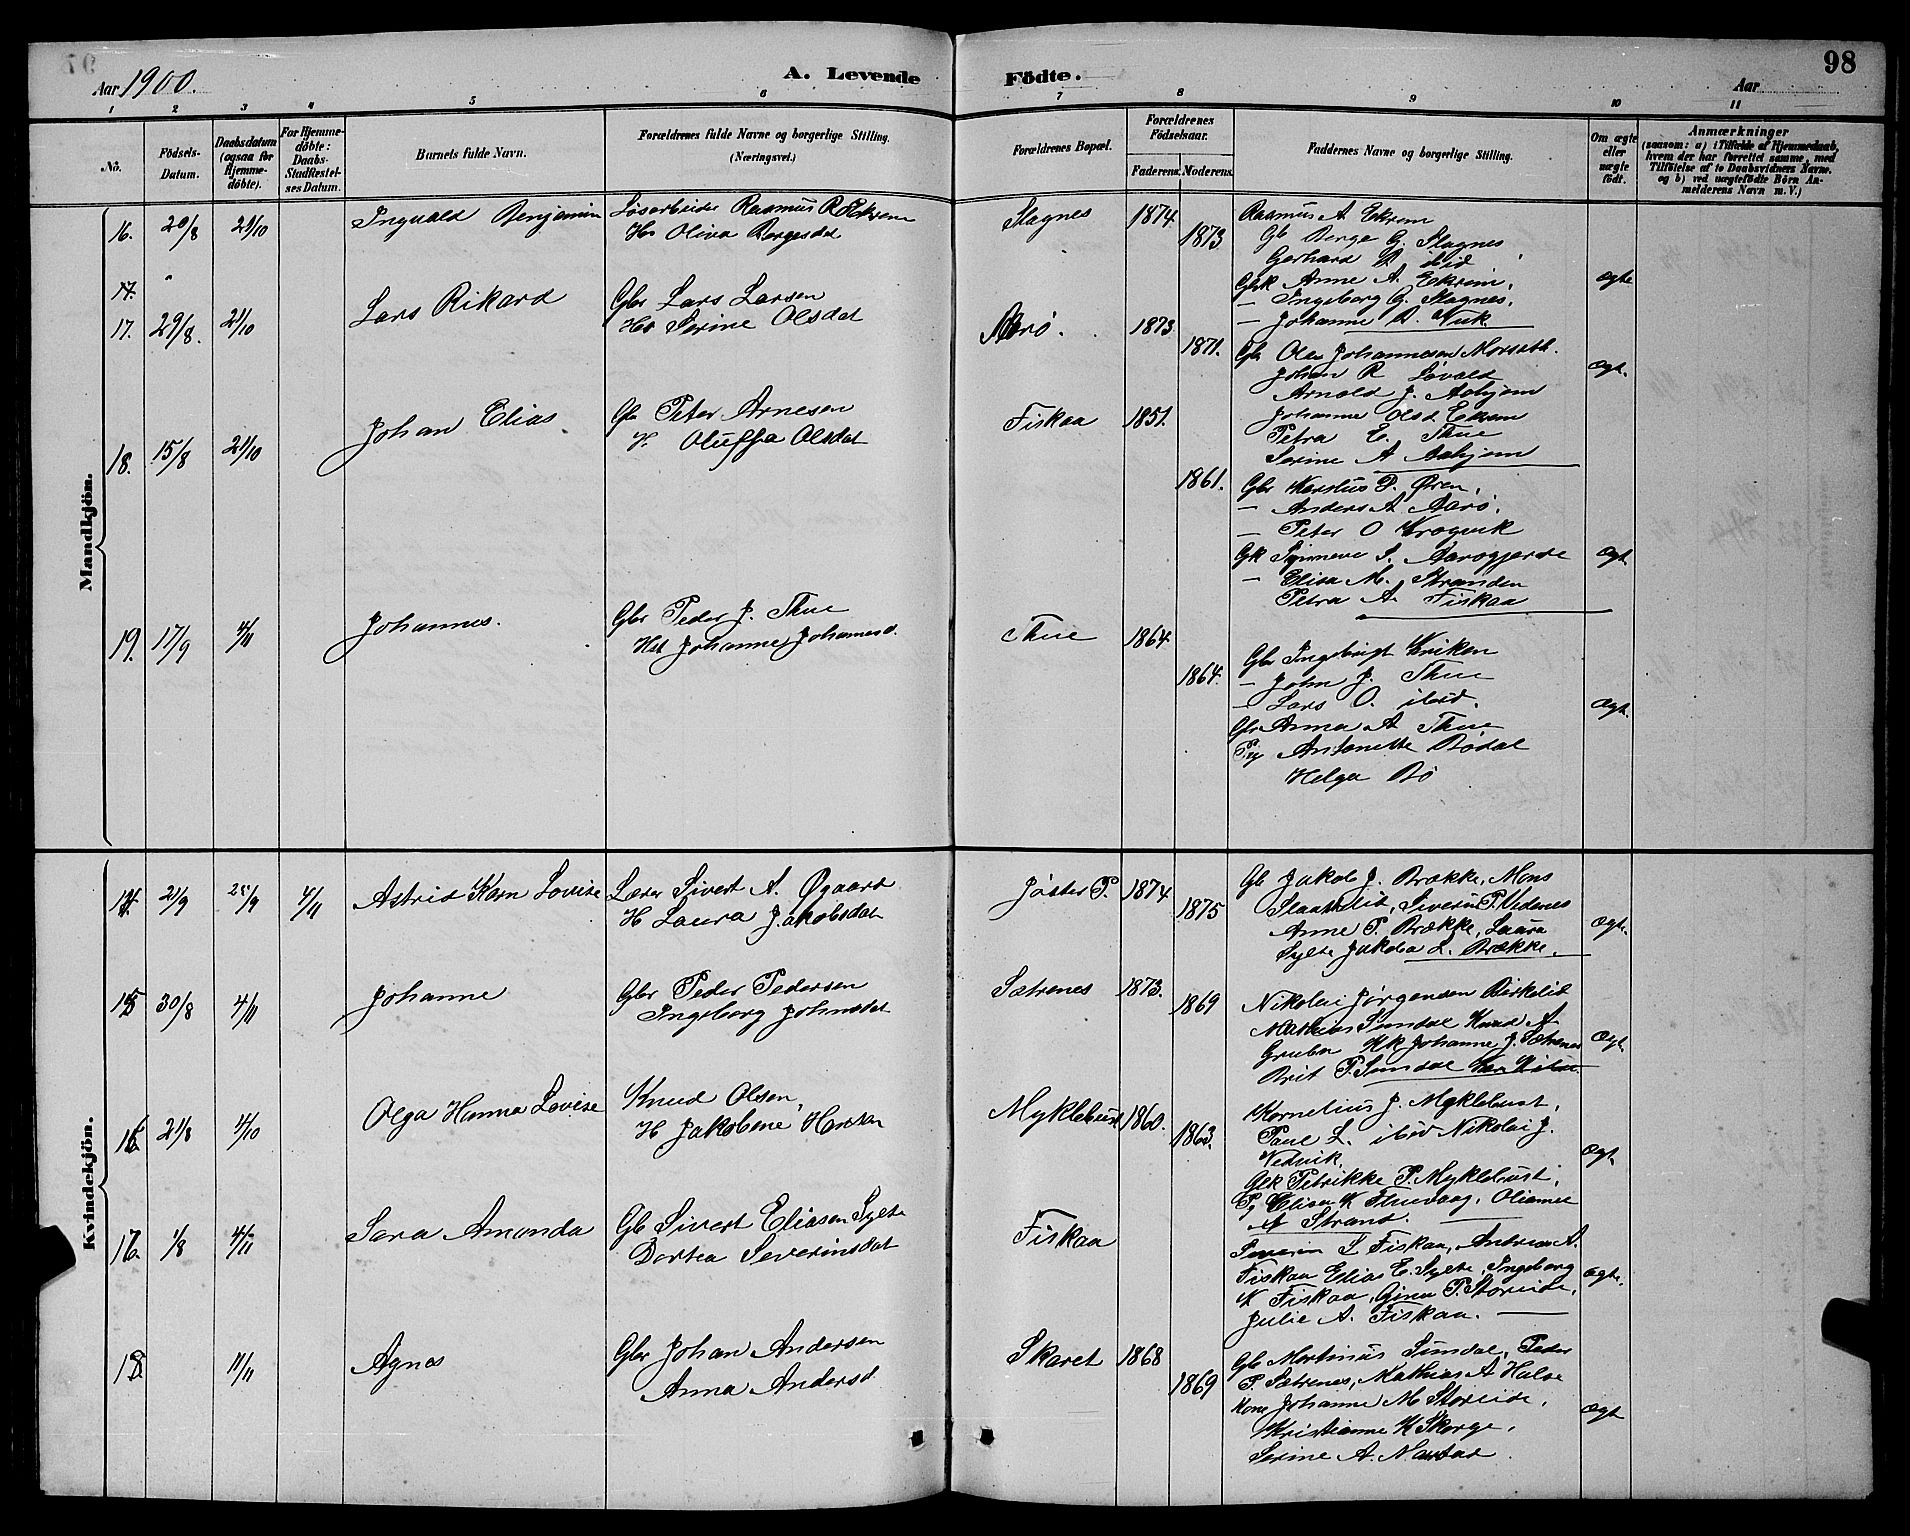 98
Aar 1900.
A. Levende Födte.
Aar
1 2 3 4 5 6 7 8 9 10 11
No.
Födsels-Datum.
Daabsdatum (ogsaa for Hjemmedöbte).
For Hjemmedöbte: Daabs-Stadfæstelses Datum.
Barnets fulde Navn.
Forældrenes fulde Navne og borgerlige Stilling.
(Næringsvei.)
Forældrenes Bopæl.
Forældrenes Födselsaar.
Faderens. Moderens.
Faddernes Navne og borgerlige Stilling.
Om ægte eller uægte födt.
Anmærkninger
(saasom: a) i Tilfælde af Hjemmedaab,
hvem der har forrettet samme, med
Tilföielse af to Daabsvidners Navne.
og b) ved uægtefödte Börn An-
melderens Navn m. V.)
Mandkjön.
16. 20/8 21/10 Ingvald Benjamin
Løsarbeider Rasmus R Ekrem
Hu Oliva Borgesdat
Slagnes 1874 1873
Rasmus A Ekrem
Gb Berge G. Slagnes
Gerhard B ibid
Gbk Anne A. Ekrem,
— Ingeborg G. Slagnes,
— Johanne B. Nuk
ægte
17.
17. 29/8. 21/10 Lars Rikard
Gbr Lars Larsen
Hu Serine Olsdat
Aarø. 1873 1871.
Gb Ole Johannesen Morseth.
Johan R Løvold
Arnold J. Aahjem
Johanne Olsd Ekrem
Petra E. Thue
Serine A Aahjem
ægt.
18. 15/8 21/10 Johan Elias
Gb Peter Arnesen
H. Oluffa Olsdat
Fiskaa 1851. 1861.
Gbr Karolus P. Øren,
— Anders A Aarø,
— Peter O Krogvik
Gk Synneve S. Aarøgjerde
— Elisa M. Stranden
Petra A. Fiskaa
ægt.
19. 17/9 4/11 Johannes.
Gbr Peder J. Thue
Hst Johanne Johannesd.
Thue 1864 1864.
Gbr Ingebrigt Eviken
— John J. Thue
— Lars O. ibid.
Gbr Anna A Thue
Pg Antonette Bødal
Helga Bø
ægt.
Kvindekjön.
14. 21/9 25/9 4/11 Astrid Karn Lovise
Lærer Sivert A. Øgaard
H Laura Jakobsdat
Jølster P. 1874 1875
Gb Jakob J. Brække, Mons
Slaattelid, Severin P. Vedenes
Anne P. Brække, Laura
Sylte Jakoba L. Brække.
ægt.
15 30/8 4/11 Johanne
Gbr Peder Pedersen
Ingeborg Johnsdat
Sætrenes 1873. 1869
Nikolai Jørgensen Birkelid
Mathias Sundal Knud A
Gruben Kk Johanne J. Sætrenes
Brit P. Sundal
ægt.
16 21/8 4/10 Olga Hanna Lovise
Knud Olsen,
H Jakobine
Myklebust 1860. 1863.
Kornelius J. Myklebust,
Paul L. ibid Nikolai J.
Vedvik,
Gbk Petrikke P. Myklebust,
Pg Elisa K Fluevaag, Oliane
A Strand.
ægt
17. 1/8 4/11 Sara Amanda
Gb Sivert Eliasen Sylte
Dortea Severinsdat
Fiskaa
Severin S Fiskaa, Andreas A.
Fiskaa Elias E. Sylte, Ingeborg
K Fiskaa, Gina P. Storeide,
Julie A. Fiskaa.
ægte.
18. 11/11 Agnes
Gbr Johan Andersen
Anna Andersd
Skaret 1868 1869
Gb Martinus Sundal, Peder
P. Sætrenes, Mathias A Halse
Kone Johanne M Storeide,
Kristianne K Skorge,
Serine A. Maastad
ægt